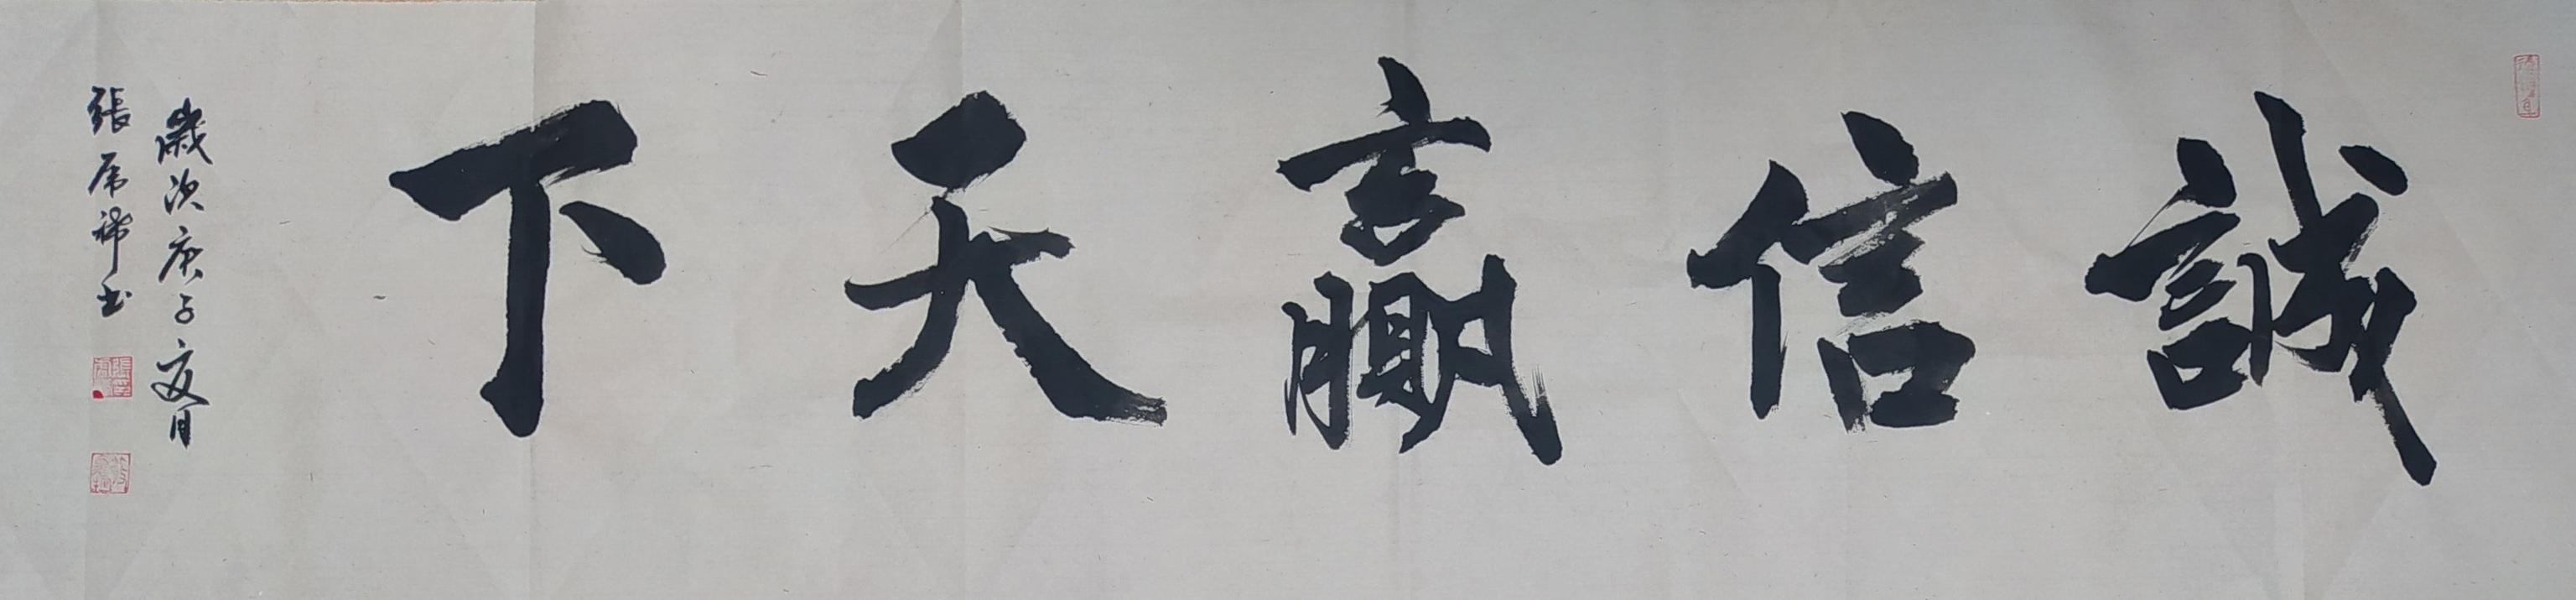 誠信贏天下
歲次庚子夏月
張席禘書